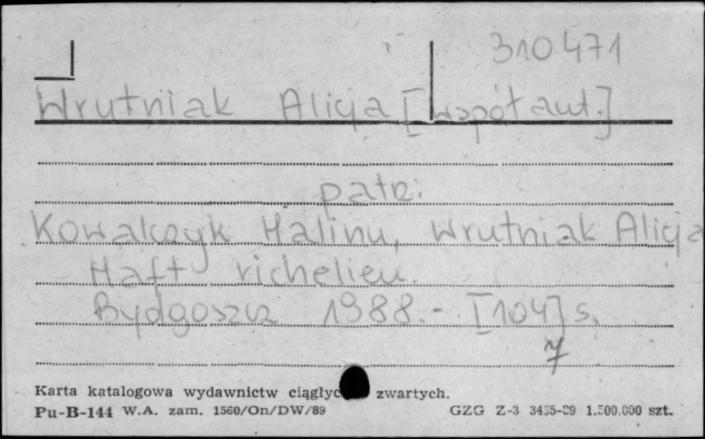 310471
Wrutniak Alicja [współaut.]
patrz:
Kowalczyk Halina, Wrutniak Alicja
Haft richelieu.
Bydgoszcz 1988.- [104] s.
7
Karta katalogowa wydawnictw zwartych.
Pu-B-144 W.A. zam. 1560/On/DW/89 GZG Z-3 1.500.000 szt.